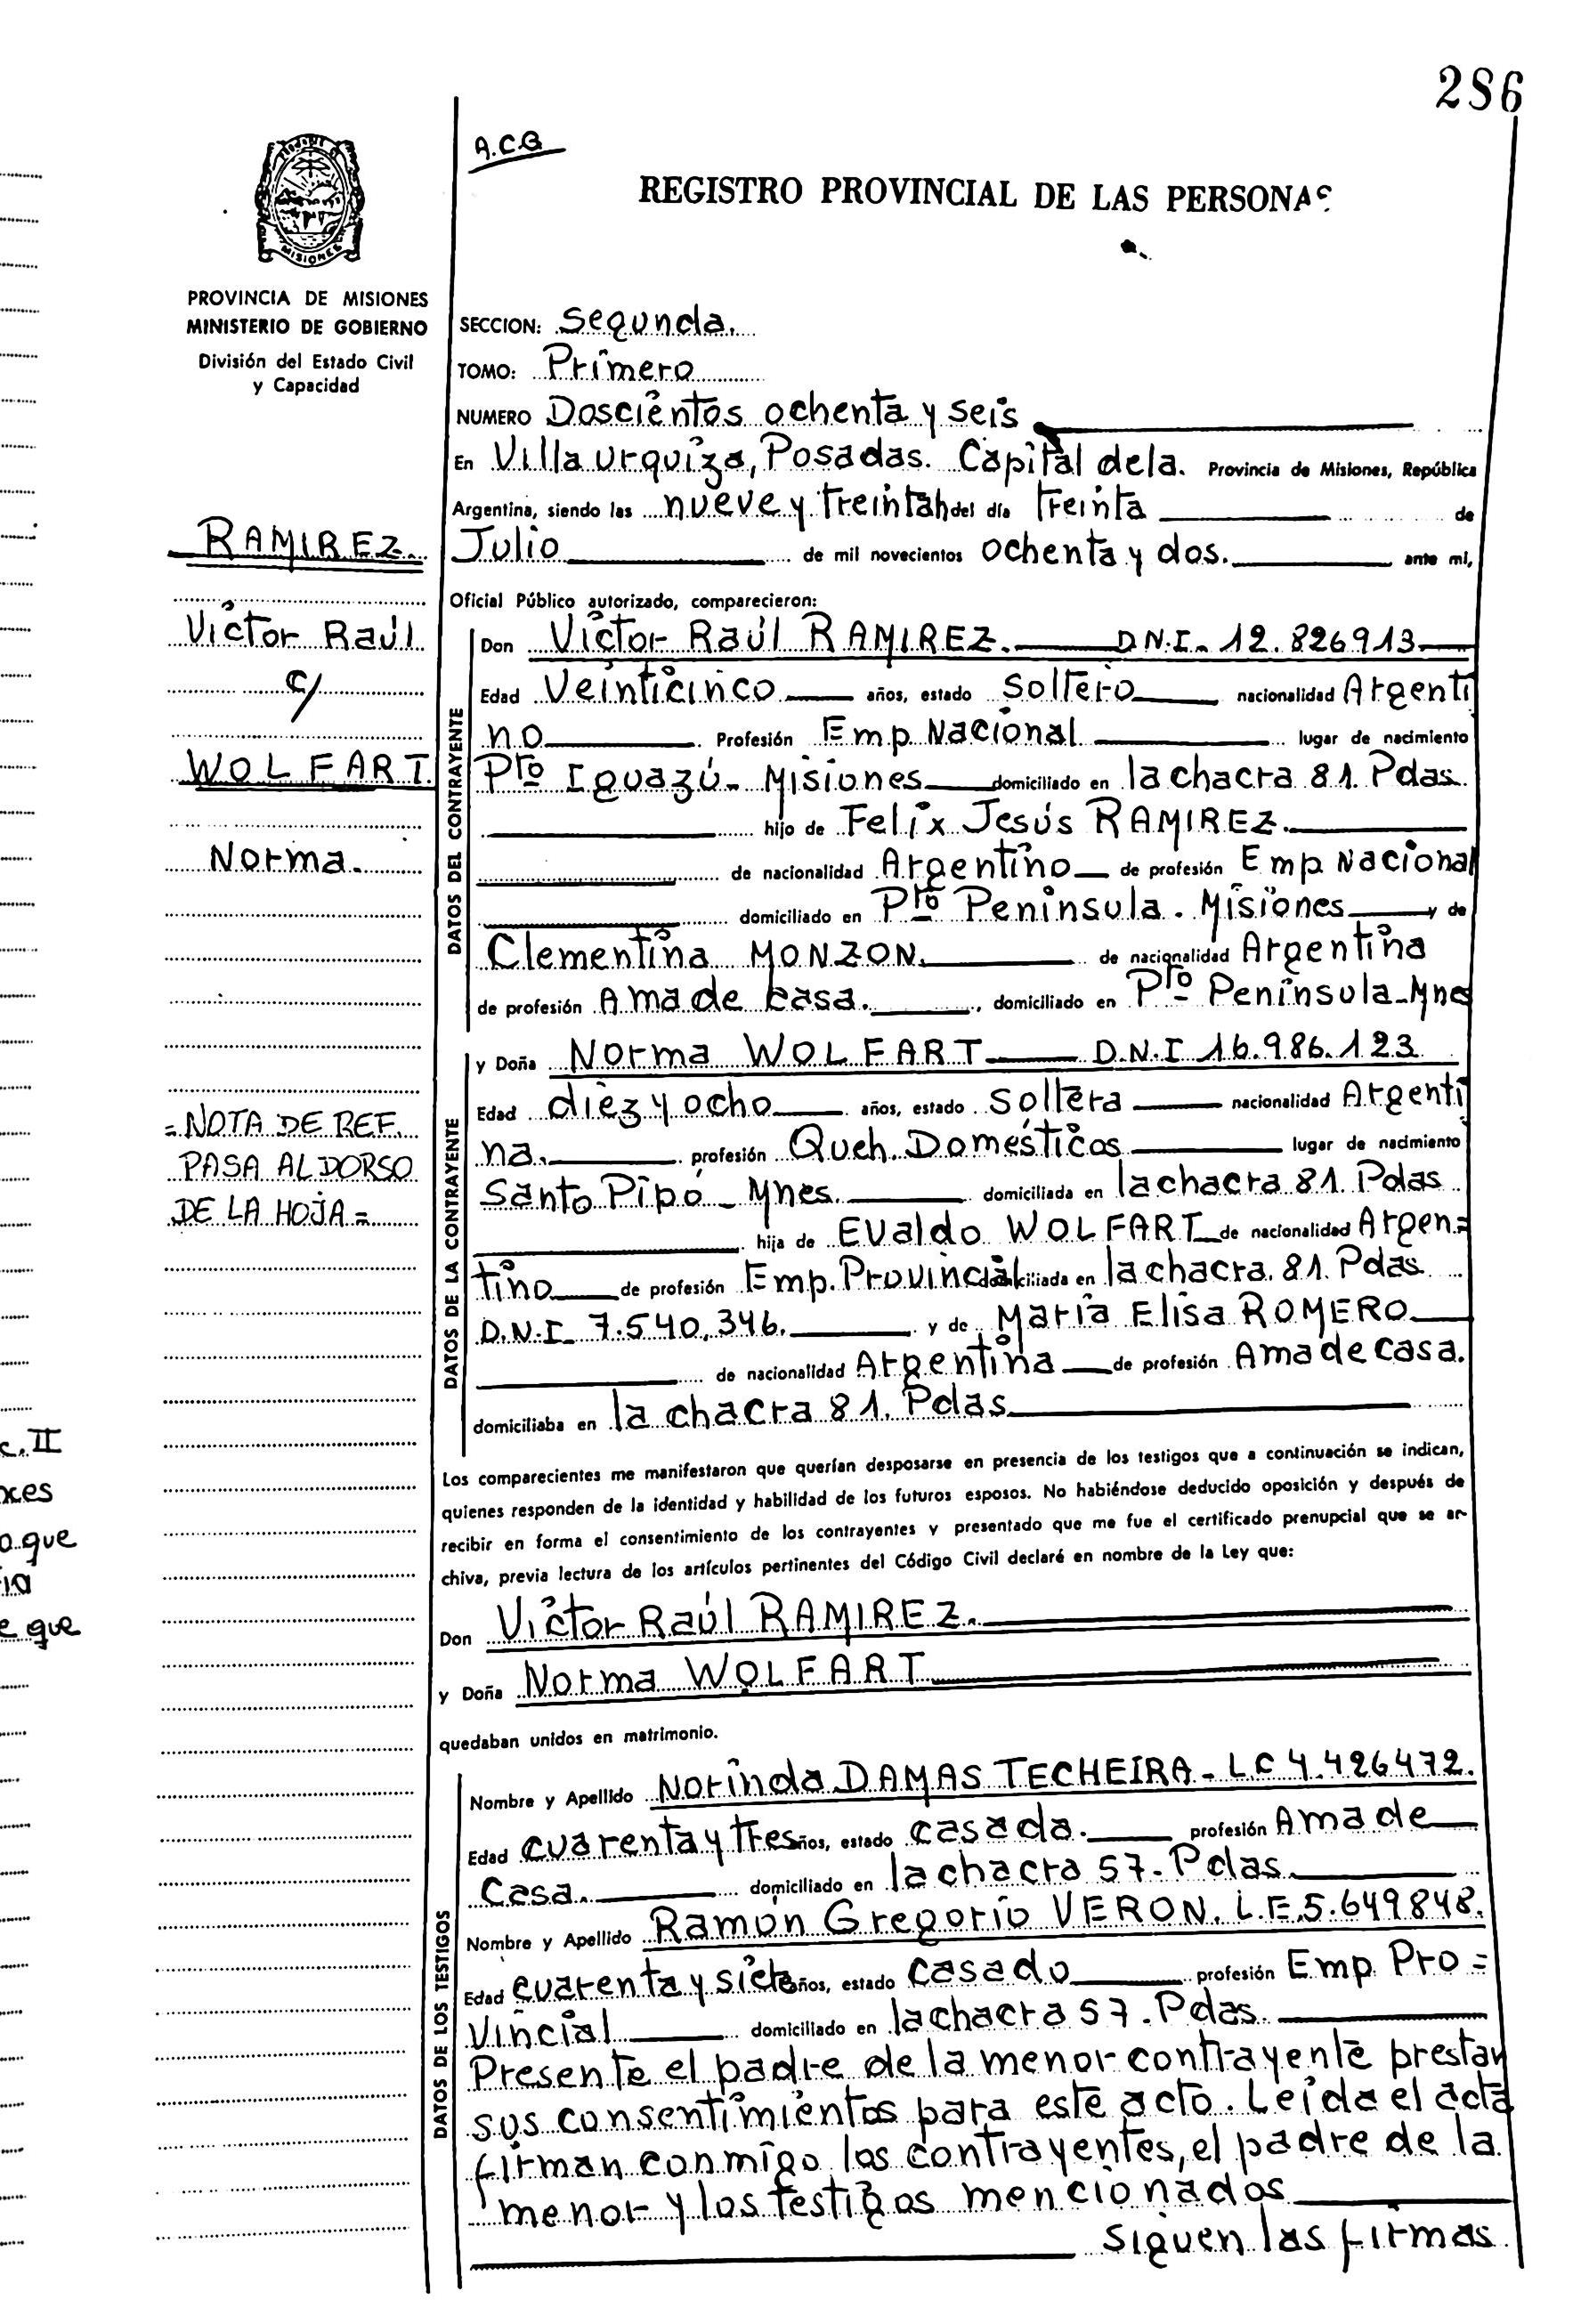 286
A.C.G
REGISTRO PROVINCIAL DE LAS PERSONAS
MISIONES
PROVINCIA DE MISIONES
MINISTERIO DE GOBIERNO
División del Estado Civil
y Capacidad
RAMIREZ.
Víctor Raúl
c/
WOLFART.
Norma.
=NOTA DE REF.
PASA AL DORSO
DE LA HOJA=
SECCION: Segunda.
TOMO: Primero
NUMERO Doscientos ochenta y seis
En Villa Urquiza, Posadas. Capital dela. Provincia de Misiones, República
Argentina, siendo las nueve y treintah del día treinta de
Julio de mil novecientos ochenta y dos. ante mi,
Oficial Público autorizado, comparecieron:
DATOS DEL CONTRAYENTE
Don Víctor Raúl RAMIREZ. D.N.I. 12.826913
Edad Veinticinco años, estado Soltero nacionalidad Argenti
no Profesión Emp Nacional lugar de nacimiento
Pto Iguazú- Misiones domiciliado en la chacra 81. Pdas.
hijo de Felix Jesús RAMIREZ.
de nacionalidad Argentino de profesión Emp Nacional
domiciliado en Pto Peninsula. Misiones y de
Clementina MONZON. de nacionalidad Argentina
de profesión Ama de casa. , domiciliado en Pto Peninsula-Mnes
DATOS DE LA CONTRAYENTE
y Doña Norma WOLFART D.N.I 16.986.123
Edad diez y ocho años, estado Soltera nacionalidad Argenti
na. profesión Queh. Domésticos lugar de nacimiento
Santo Pipó - Mnes. domiciliada en la chacra 81. Pdas
hija de Evaldo WOLFART de nacionalidad Argen=
tino de profesión Emp. Provincial domiciliada en la chacra. 81. Pdas
D.N.I 7.540,346. y de María Elisa ROMERO
de nacionalidad Argentina de profesión Ama de casa.
domiciliaba en la chacra 81. Pdas
Los comparecientes me manifestaron que querían desposarse en presencia de los testigos que a continuación se indican,
quienes responden de la identidad y habilidad de los futuros esposos. No habiéndose deducido oposición y después de
recibir en forma el consentimiento de los contrayentes y presentado que me fue el certificado prenupcial que se ar-
chiva, previa lectura de los artículos pertinentes del Código Civil declaré en nombre de la Ley que:
Don Víctor Raúl RAMIREZ.
y Doña Norma WOLFART
quedaban unidos en matrimonio.
DATOS DE LOS TESTIGOS
Nombre y Apellido Norinda DAMAS TECHEIRA - LC 4.426472.
Edad cuarenta y tres años, estado casada. profesión Ama de
Casa. domiciliado en la chacra 57- Pdas.
Nombre y Apellido Ramón Gregorio VERON. L.E.5.649848.
Edad cuarenta y siete años, estado casado profesión Emp Pro=
vincial domiciliado en la chacra 57. Pdas.
Presente el padre de la menor contrayente prestan
sus consentimientos para este acto. Leída el acta
firman conmigo los contrayentes, el padre de la
menor y los testigos mencionados
siguen las firmas.
c. II
o que
e que